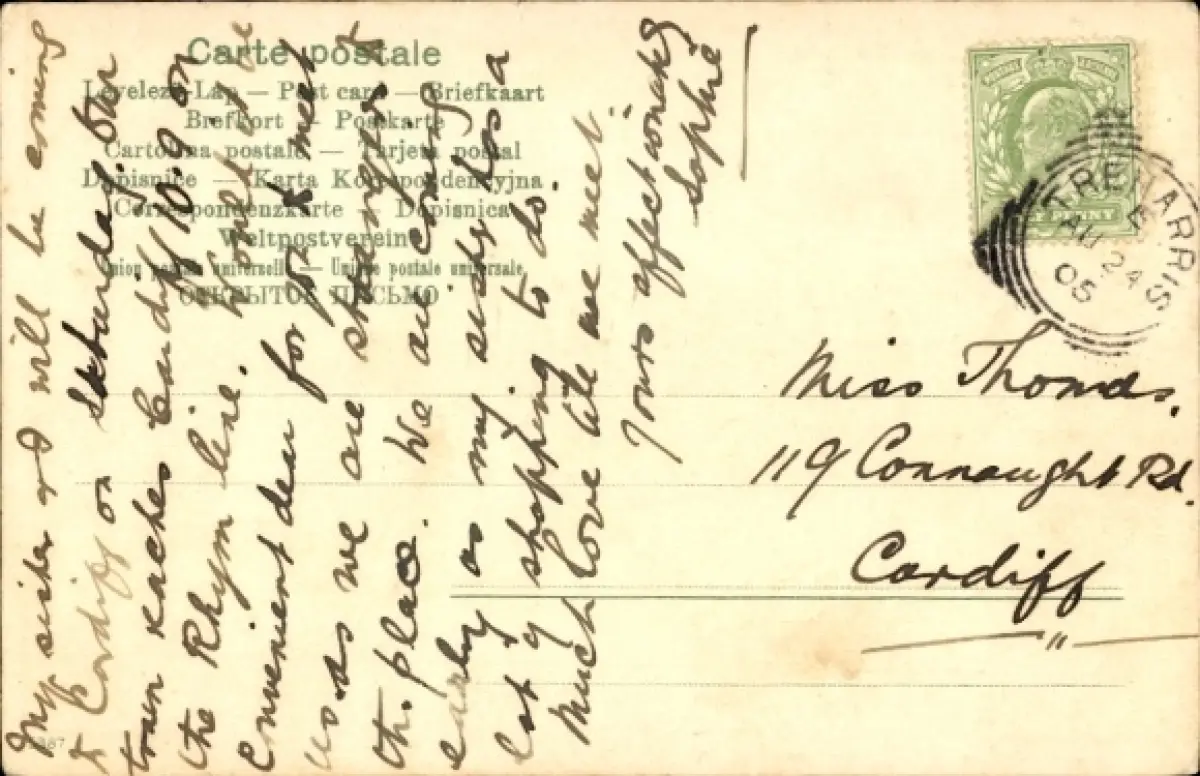 Carte postale
Levelező-Lap — Post card — Briefkaart
Brefkort — Postkarte
Cartolina postale — Tarjeta postal
Dopisnice — Karta Korespondencyjna
Correspondenzkarte — Dopisnica
Weltpostverein
Union postale universelle — Unione postale universale
ОТКРЫТОЕ ПИСЬМО
My sister & I will be coming
to Cardiff on Saturday. Our
train reaches Cardiff 10.9 on
the Rhym line. Would it be
Convenient dear for you to meet
us. as we are strangers to
the place. We are coming
early as my sister has a
lot of shopping to do.
Much love till we meet.
Yours affectionately
Sophie
TREHARRIS
E
AU 24
05
Miss Thomas.
119 Connaught Rd.
Cardiff